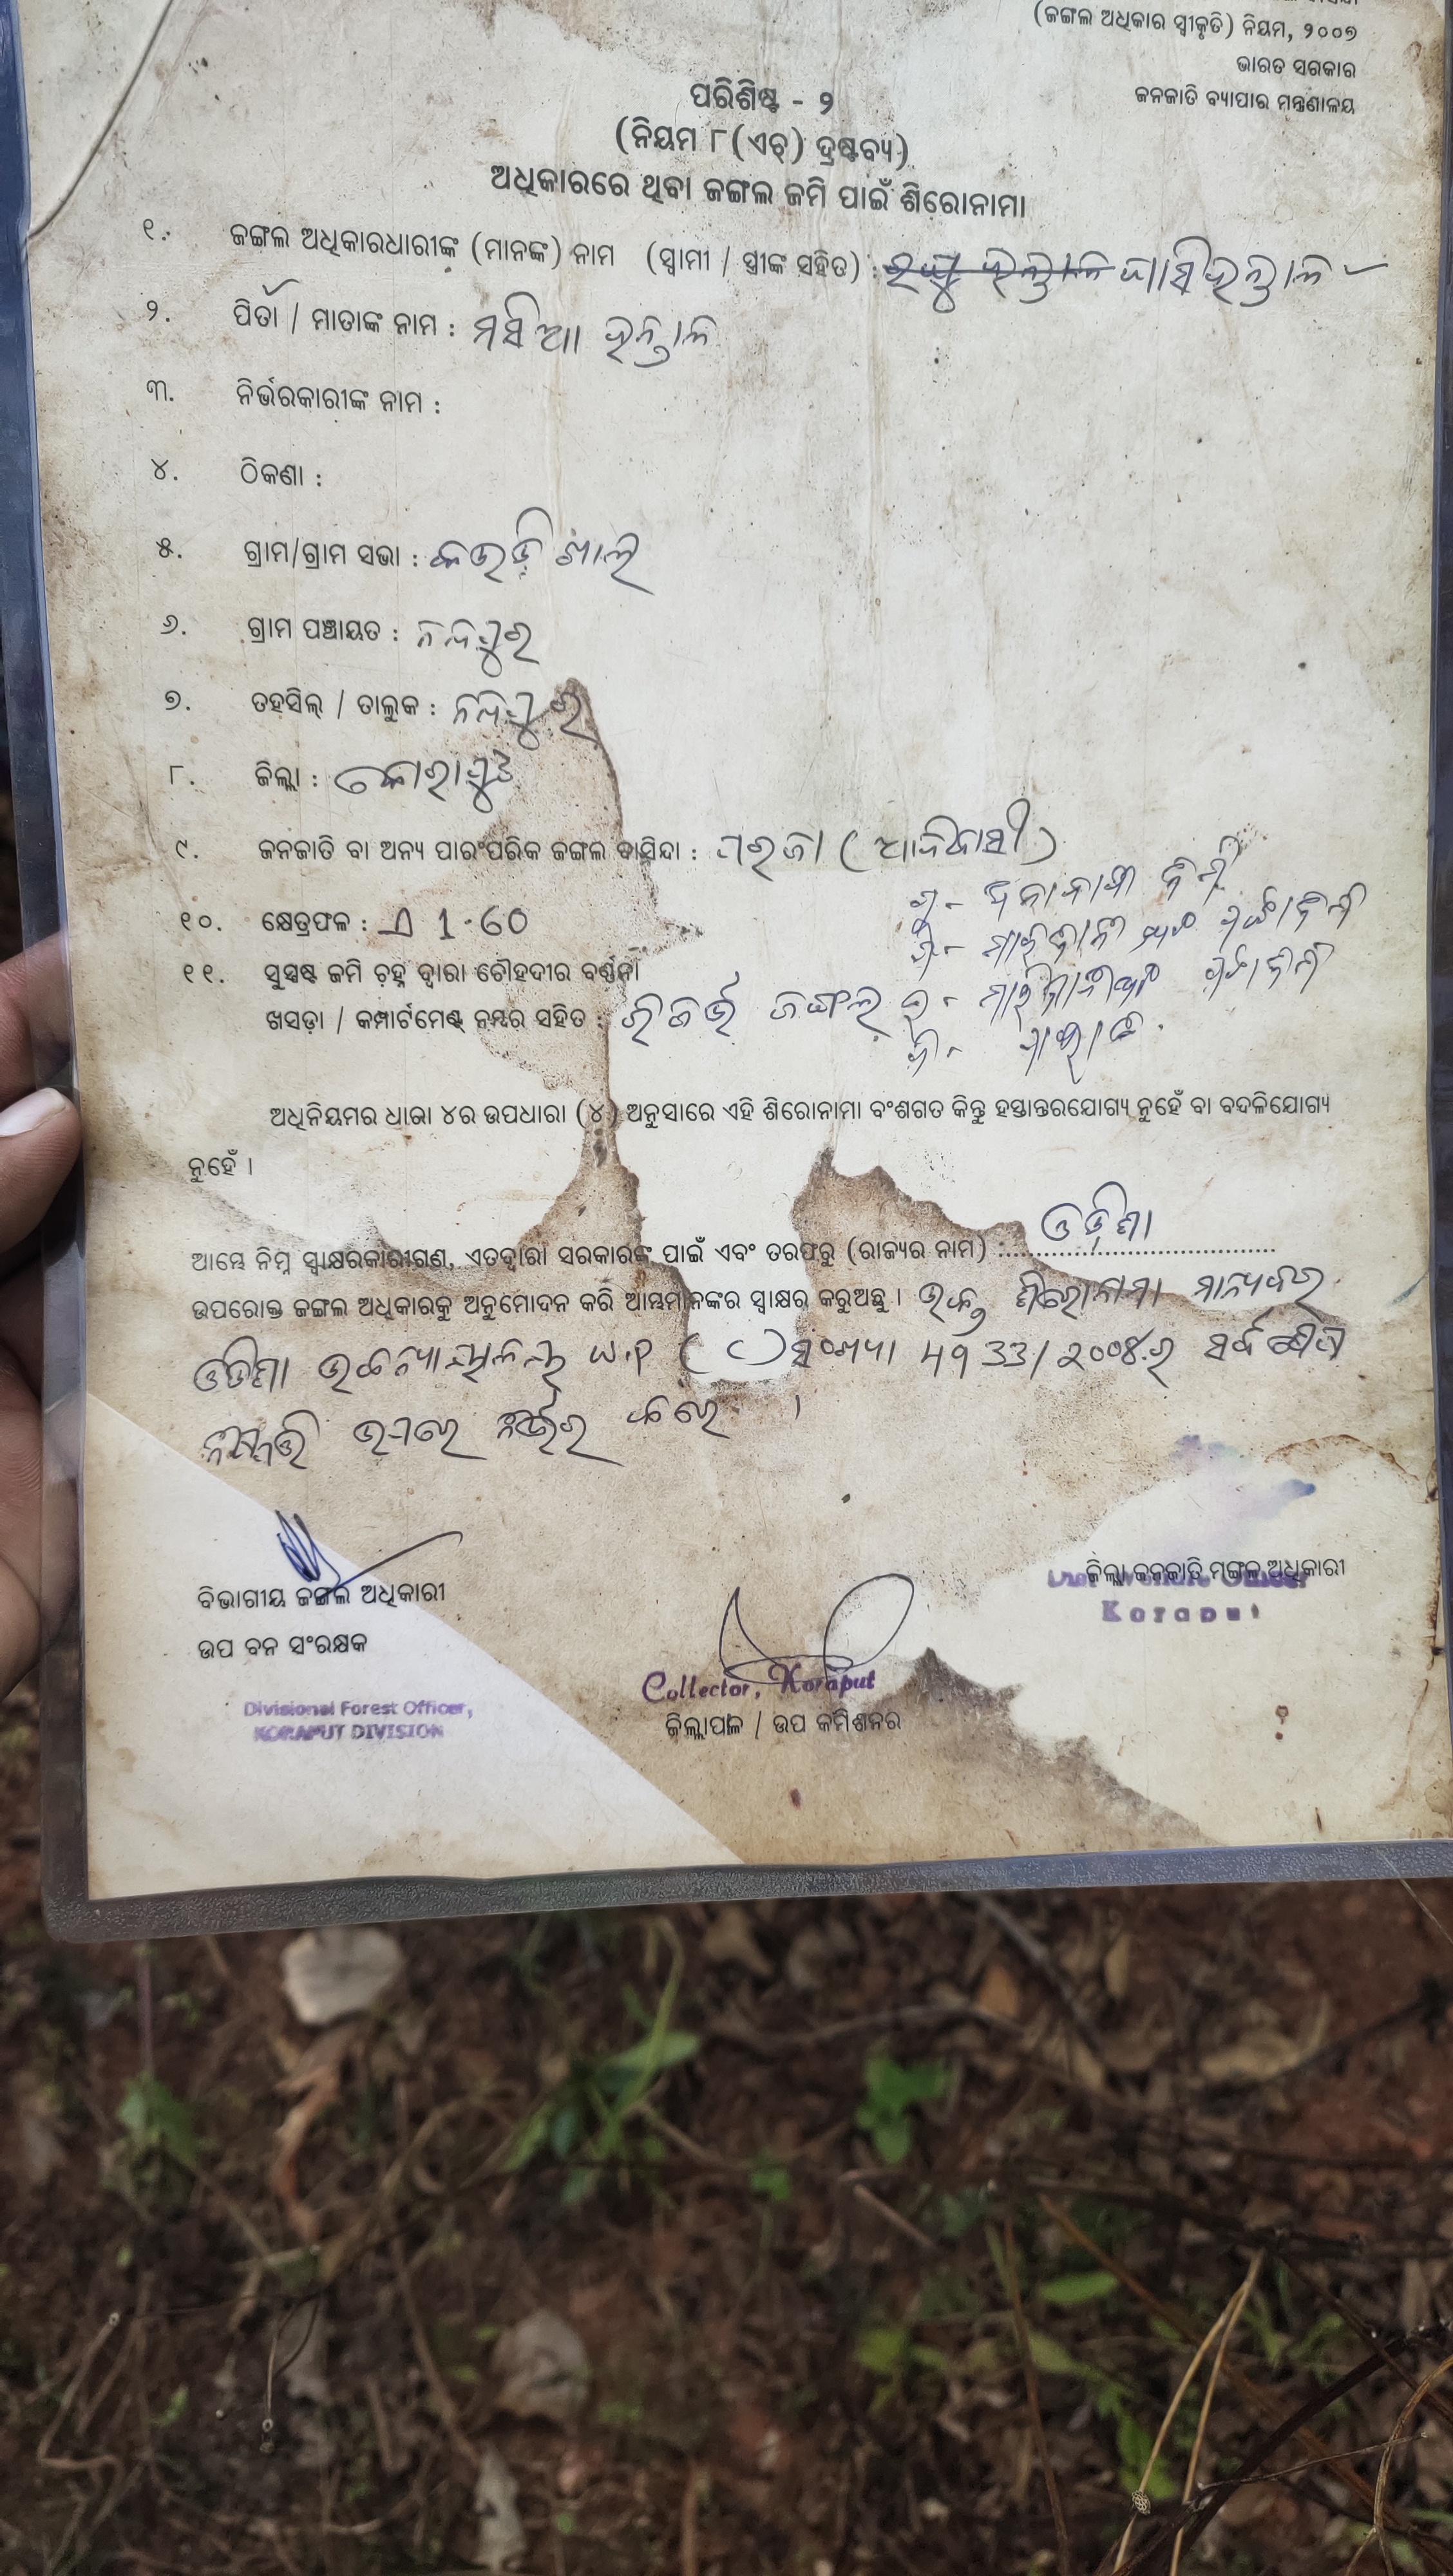 (ଜଙ୍ଗଲ ଅଧିକାର ସ୍ୱୀକୃତି) ନିୟମ, ୨୦୦୭
ଭାରତ ସରକାର
ଜନଜାତି ବ୍ୟାପାର ମନ୍ତ୍ରଣାଳୟ
ପରିଶିଷ୍ଟ - ୨
(ନିୟମ ୮(ଏଚ୍) ଦ୍ରଷ୍ଟବ୍ୟ)
ଅଧିକାରରେ ଥିବା ଜଙ୍ଗଲ ଜମି ପାଇଁ ଶିରୋନାମା
୧. ଜଙ୍ଗଲ ଅଧିକାରଧାରୀଙ୍କ (ମାନଙ୍କ) ନାମ (ସ୍ୱାମୀ / ସ୍ତ୍ରୀଙ୍କ ସହିତ) : ହନ୍ତାଳ
୨. ପିତା / ମାତାଙ୍କ ନାମ : ମସିଆ ହନ୍ତାଳ
୩. ନିର୍ଭରକାରୀଙ୍କ ନାମ :
୪. ଠିକଣା :
୫. ଗ୍ରାମ/ଗ୍ରାମ ସଭା : କଉଡ଼ିଖାଲ
୬. ଗ୍ରାମ ପଞ୍ଚାୟତ : ନନ୍ଦପୁର
୭. ତହସିଲ୍ / ତାଲୁକ : ନନ୍ଦପୁର
୮. ଜିଲ୍ଲା : କୋରାପୁଟ
୯. ଜନଜାତି ବା ଅନ୍ୟ ପାରଂପରିକ ଜଙ୍ଗଲ ବାସିନ୍ଦା : ପରଜା (ଆଦିବାସୀ)
୧୦. କ୍ଷେତ୍ରଫଳ : ଏ 1.60
୧୧. ସୁସ୍ପଷ୍ଟ ଜମି ଚ଼ହ୍ନ ଦ୍ୱାରା ଚୌହଦୀର ବର୍ଣ୍ଣନା
ଖସଡ଼ା / କମ୍ପାର୍ଟମେଣ୍ଟ ନମ୍ବର ସହିତ : ରିଜର୍ଭ ଜଙ୍ଗଲ
ଅଧିନିୟମର ଧାରା ୪ର ଉପଧାରା (୪) ଅନୁସାରେ ଏହି ଶିରୋନାମା ବଂଶଗତ କିନ୍ତୁ ହସ୍ତାନ୍ତରଯୋଗ୍ୟ ନୁହେଁ ବା ବଦଳିଯୋଗ୍ୟ
ନୁହେଁ ।
ଆମ୍ଭେ ନିମ୍ନ ସ୍ୱାକ୍ଷରକାରୀଗଣ, ଏତଦ୍ୱାରା ସରକାରଙ୍କ ପାଇଁ ଏବଂ ତରଫରୁ (ରାଜ୍ୟର ନାମ) : ଓଡ଼ିଶା
ଉପରୋକ୍ତ ଜଙ୍ଗଲ ଅଧିକାରକୁ ଅନୁମୋଦନ କରି ଆମ୍ଭମାନଙ୍କର ସ୍ୱାକ୍ଷର କରୁଅଛୁ । ଉକ୍ତ ଶିରୋନାମା ମାନ୍ୟବର
ଓଡିଶା W.P (C) ସଂଖ୍ୟା 4933/2008 ର ସର୍ବଶେଷ
ଉପରେ ନିର୍ଭର କରେ ।
ବିଭାଗୀୟ ଜଙ୍ଗଲ ଅଧିକାରୀ
ଉପ ବନ ସଂରକ୍ଷକ
Divisional Forest Officer,
KORAPUT DIVISION
Collector, Koraput
ଜିଲ୍ଲାପାଳ / ଉପ କମିଶନର
ଜିଲ୍ଲା ଜନଜାତି ମଙ୍ଗଳ ଅଧିକାରୀ
Koraput